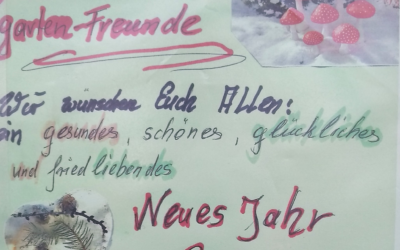 garten-Freunde
Wir wünschen Euch Allen:
ein gesundes, schönes, glückliches
und friedliebendes
Neues Jahr